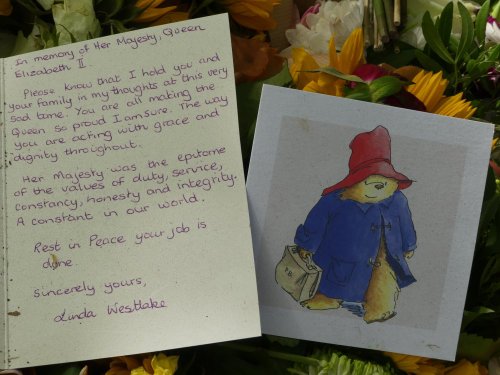 In memory of Her Majesty, Queen
Elizabeth II
Please know that I hold you and
your family in my thoughts at this very
sad time. You are all making the
Queen so proud I am sure. The way
you are acting with grace and
dignity throughout.
Her Majesty was the epitome
of the values of duty, service,
constancy, honesty and integrity.
A constant in our world.
Rest in Peace your job is
done.
Sincerely yours,
Linda Westlake
P.B.